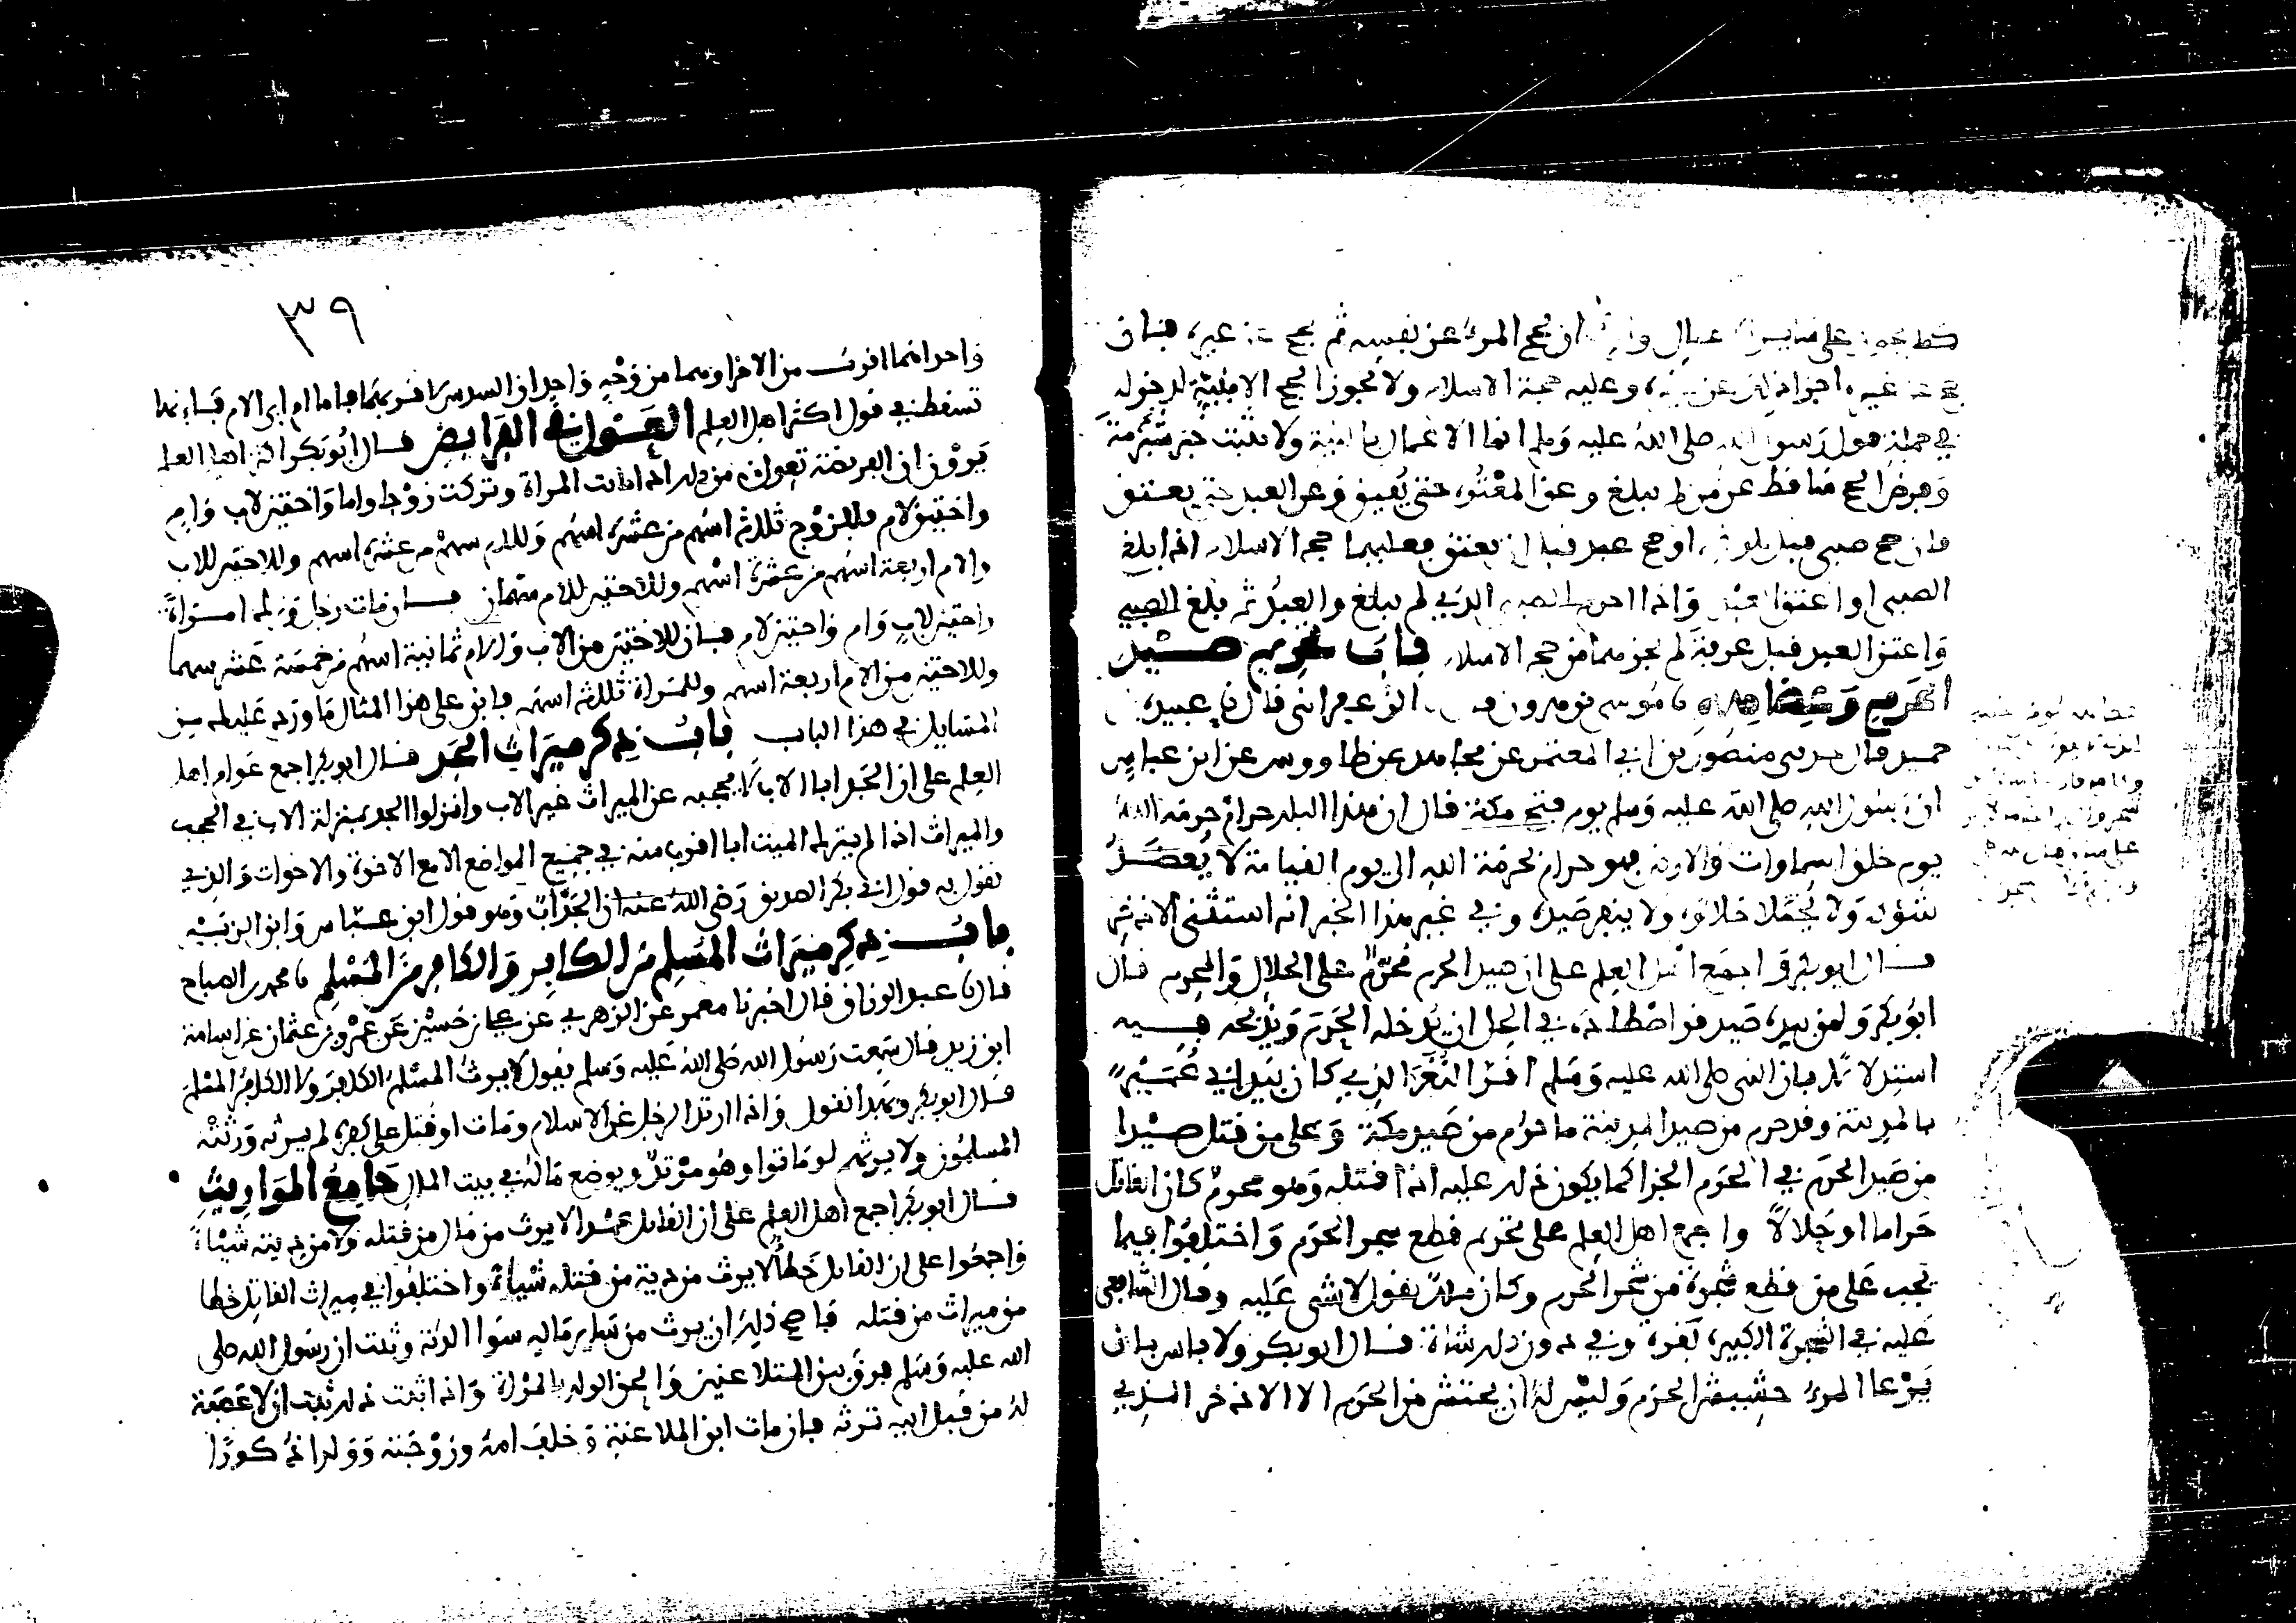 ان يحج المرء عن نفسه ثم يحج عن غيره فان
حج عن غيره اجزا ذلك عن غيره وعليه حجة الاسلام ولا يجوز الحج الا بنية لدخوله
في جملة قول رسول الله صلى الله عليه وسلم انما الاعمال بالنية ولا تثبت
وفرض الحج ساقط عن من لم يبلغ وعن المعتوه حتى يفيق وعن العبد حتى يعتق
فان حج صبي قبل بلوغه او حج عبد قبل ان يعتق فعليهما حجة الاسلام اذا بلغ
الصبي او اعتق العبد واذا احرم الصبي الذي لم يبلغ والعبد ثم بلغ الصبي
واعتق العبد قبل عرفة لم يجز عنهما من حجة الاسلام باب تحريم صيد
الحرم نا موسى بن هرون الزعفراني قال نا عبيدة بن
حميد قال حدثني منصور بن ابي المعتمر عن مجاهد عن طاووس عن ابن عباس
ان رسول الله صلى الله عليه وسلم يوم فتح مكة قال ان هذا البلد حرام حرمه الله
يوم خلق السماوات والارض فهو حرام بحرمة الله الى يوم القيامة لا يعضد
شوكه ولا يختلا خلاؤه ولا ينفر صيده وفي غير هذا الخبر انه استثنى الاذخر
قال ابو بكر واجمع اهل العلم على ان صيد الحرم محرم على الحلال والمحرم قال
ابو بكر ولمن بيده صيد قد اصطاده في الحل ان يدخله الحرم ويذبحه فيه
استدلالا بان النبي صلى الله عليه وسلم اقر النغر الذي كان بيد ابي عمير
بالمدينة وقد حرم من صيد المدينة ما حرم من صيد مكة وعلى من قتل صيدا
من صيد الحرم في الحرم الجزا كما يكون ذلك عليه اذا قتله وهو محرم كان القاتل
حراما او حلالا واجمع اهل العلم على تحريم قطع شجر الحرم واختلفوا فيما
يجب على من قطع شجرة من شجر الحرم وكان ملك يقول لا شي عليه وقال الشافعي
عليه في الشجرة الكبيرة بقرة وفي دون ذلك شاة قال ابو بكر ولا باس بان
يرعا المرء حشيش الحرم وليس له ان يحتش من الحرم الا الاذخر الذي
٣٩
واحدا منهما اقرب من الاخر او هما من وجه واحد ان السدس لاقربهما فاما ام ابي الام فانها
تسقط في قول اكثر اهل العلم العول في الفرايض قال ابو بكر اكثر اهل العلم
يرون ان الفريضة تعول من ذلك اذا ماتت المراة وتركت زوجا واما واختين لاب وام
واختين لام فللزوج ثلاثة اسهم من عشرة اسهم وللام سهم من عشرة اسهم وللاختين للاب
والام اربعة اسهم من عشرة اسهم وللاختين للام سهمان فان مات رجل وترك امراة
واختين لاب وام واختين لام فان للاختين من الاب والام ثمانية اسهم من خمسة عشر سهما
وللاختين من الام اربعة اسهم وللمراة ثلاثة اسهم فابن على هذا المثال ما ورد عليك من
المسايل في هذا الباب باب ذكر ميراث الجد قال ابو بكر اجمع عوام اهل
العلم على ان الجد ابا الاب لا يحجبه عن الميراث غير الاب وانزلوا الجد بمنزلة الاب في الحجب
والميراث اذا لم يترك الميت ابا اقرب منه في جميع المواضع الا مع الاخوة والاخوات والذي
نقول به قول ابي بكر الصديق رضي الله عنه ان الجد اب وهو قول ابن عباس وابن الزبير
باب ذكر ميراث المسلم من الكافر والكافر من المسلم نا محمد بن الصباح
قال نا عبد الرزاق قال اخبرنا معمر عن الزهري عن علي بن حسين عن عمرو بن عثمان عن اسامة
ابن زيد قال سمعت رسول الله صلى الله عليه وسلم يقول لا يرث المسلم الكافر ولا الكافر المسلم
قال ابو بكر وبهذا نقول واذا ارتد الرجل عن الاسلام ومات او قتل على كفره لم يرثه ورثته
المسلمون ولا يرثهم لو ماتوا وهو مرتد ويوضع ماله في بيت المال جامع المواريث
قال ابو بكر اجمع اهل العلم على ان القاتل عمدا لا يرث من مال من قتله ولا من ديته شياء
واجمعوا على ان القاتل خطأ لا يرث من دية من قتله شياء واختلفوا في ميراث القاتل خطا
من ميراث من قتله فاصح ذلك ان يرث من ساير ماله سوا الدية وثبت ان رسول الله صلى
الله عليه وسلم فرق بين المتلاعنين والحق الولد بالمراة واذا ثبت ذلك ثبت ان لا عصبة
له من قبل ابيه ترثه فان مات ابن الملاعنة وخلف امه وزوجته وولدا ذكورا